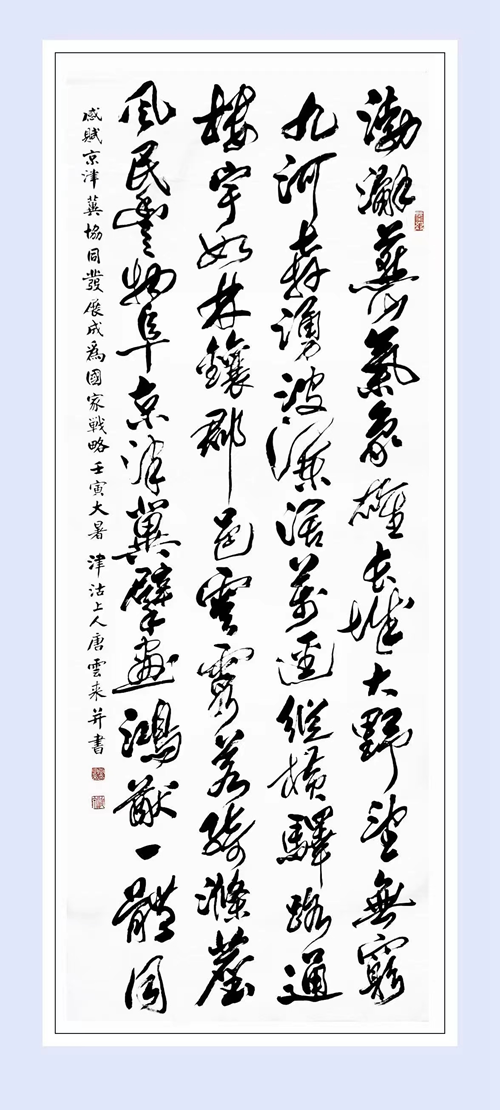 渤澥燕山氣象雄長城大野望無窮
九河奔湧波濶萬逕縱橫驛路通
樓宇如林鑲郡邑雲霞若綺滌塵
風民豐物阜京津冀擘畫鴻猷一體同
感賦京津冀協同發展成爲國家戰略壬寅大暑 津沽上人唐雲來并書